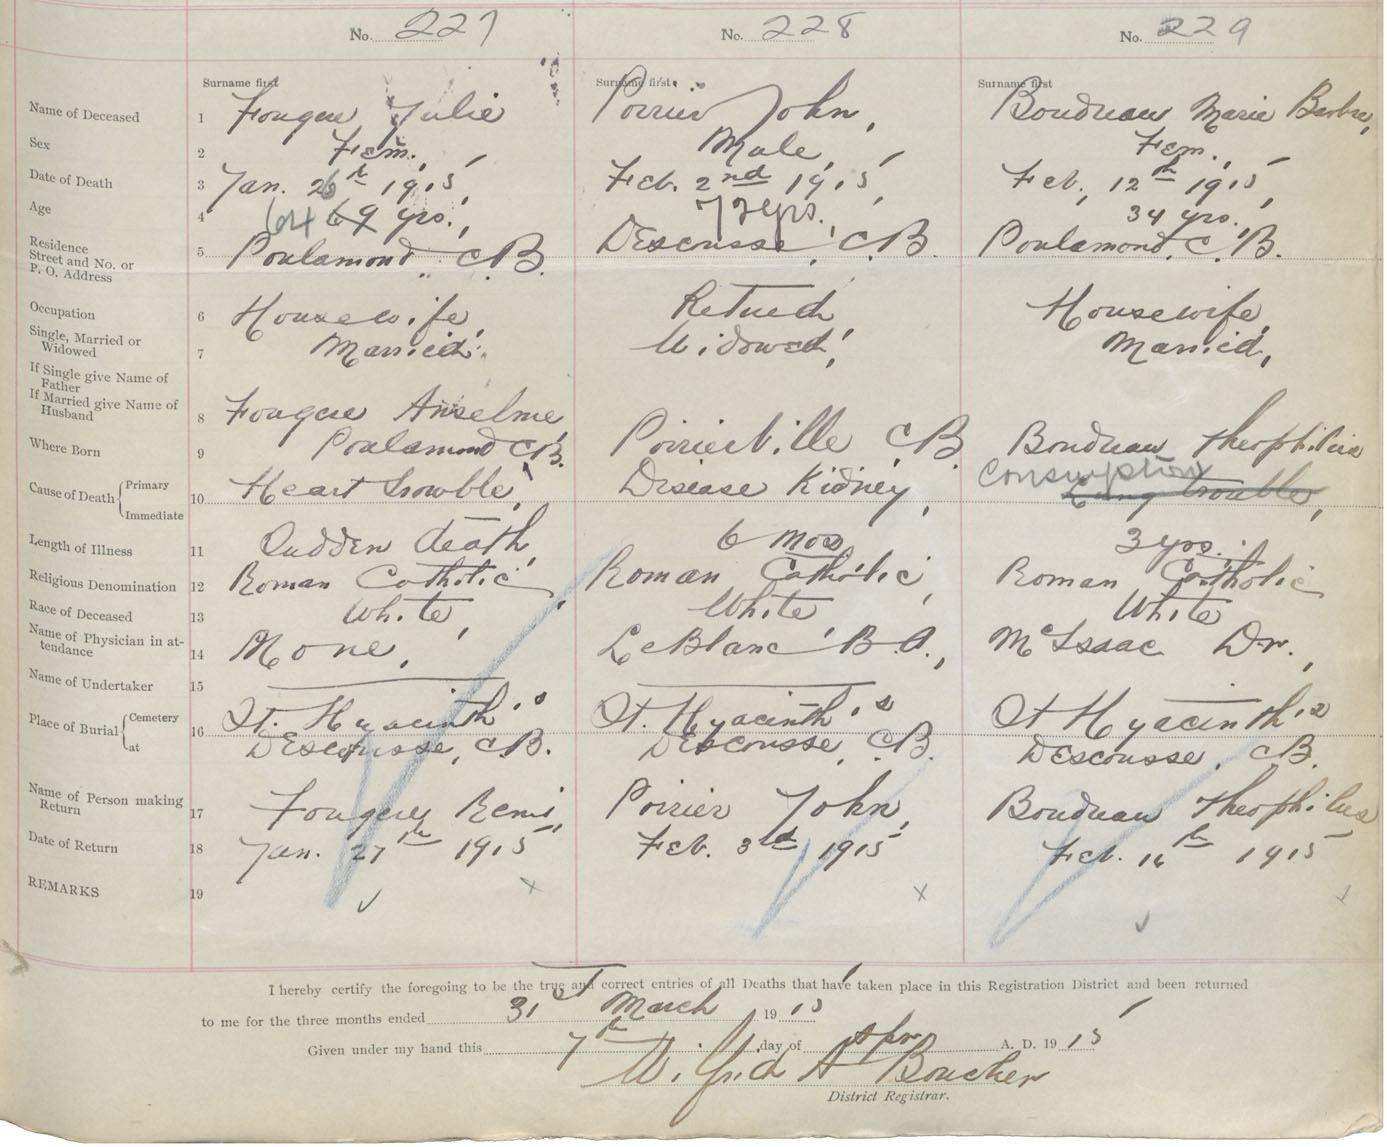 No. 227 No. 228 No. 229
Surname first Surname first Surname first
Name of Deceased 1 Fougere Julie Poirier John, Boudreau Marie Barbra,
Sex 2 Fem., Male, Fem.,
Date of Death 3 Jan. 26th 1915, Feb. 2nd 1915, Feb. 12th 1915,
Age 4 64 69 yrs., 72 yrs. 34 yrs.
Residence Street and No. or P. O. Address 5 Poulamond, C.B. DEscousse, C.B. Poulamond, C.B.
Occupation 6 Housewife, Retired, Housewife,
Single, Married or Widowed 7 Married. Widowed, Married,
If Single give Name of Father
If Married give Name of Husband 8 Fougere Anselme,
Where Born 9 Poulamond C.B. Poirierville CB. Boudreau Theophilus
Consumption
Cause of Death Primary Immediate 10 Heart Trouble, Disease Kidney, Lung trouble,
Length of Illness 11 Sudden death, 6 mos 3 yrs.
Religious Denomination 12 Roman Catholic, Roman Catholic, Roman Catholic
Race of Deceased 13 White, White, White
Name of Physician in attendance 14 None, LeBlanc B.A., McIssac Dr.,
Name of Undertaker 15
Place of Burial Cemetery at 16 St. Hyacinth's St. Hyacinth's St Hyacinth's
DEscousse, C.B. DEscousse, C.B. DEscousse, CB.
Name of Person making Return 17 Fougere, Remi, Poirier John, Boudreau Theophilus
Date of Return 18 Jan. 27th 1915 Feb. 3rd 1915 Feb. 14th 1915
REMARKS 19
I hereby certify the foregoing to be the true and correct entries of all Deaths that have taken place in this Registration District and been returned
to me for the three months ended 31st March 1915
Given under my hand this 7th day of Apr A. D. 1915
Wilfrid A Boucher
District Registrar.